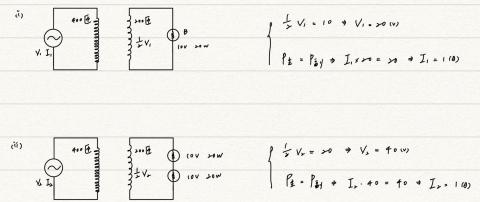 (i)
V₁ I₁
400回
200回
½V₁
B
10V 20W
½ V₁ = 10 ⇒ V₁ = 20 (V)
P主 = P副 ⇒ I₁ × 20 = 20 ⇒ I₁ = 1 (A)
(ii)
V₂ I₂
400回
200回
½V₂
10V 20W
10V 20W
½ V₂ = 20 ⇒ V₂ = 40 (V)
⇒ I₂ · 40 = 40 ⇒ I₂ = 1 (A)